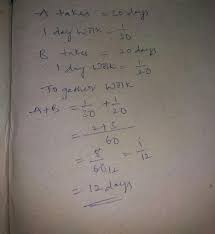 A takes = 30 days
1 day work = 1/30
B takes = 20 days
1 day work = 1/20
Together work
A+B = 1/30 + 1/20
= 2+3/60
= 5/60 12 = 1/12
= 12 days